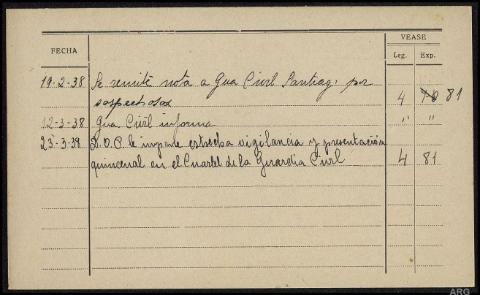 VEASE
FECHA
Leg. Exp.
19-2-38 Se remite nota a Gua Civil Santiag. por
sospechosa 4 70 81
12-3-38 Gua. Civil informa " "
23-3-38 D.O.P. le impone estrecha vigilancia y presentación
quincenal en el Cuartel de la Guardia Civil 4 81
ARG